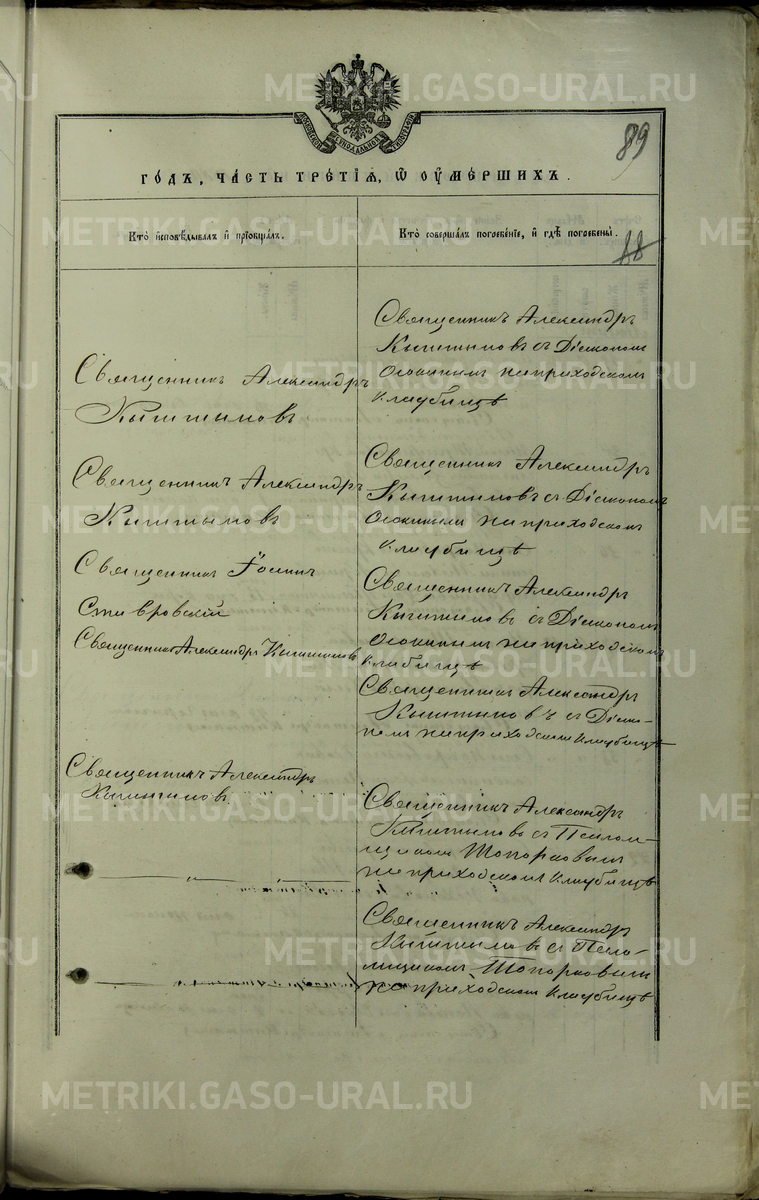 89
годъ, часть третія, ѡ оумершихъ.
Кто исповѣдывалъ и пріобщалъ.
Кто совершалъ погребеніе, и гдѣ погребены.
88
Священникъ Александръ
Кыштымовъ
Священникъ Александръ
Кыштымовъ
Священникъ Іоаннъ
Ставровскій
Священникъ Александръ Кыштымовъ
Священникъ Александръ
Кыштымовъ
Священникъ Александръ
Кыштымовъ съ Діакономъ
Осокинымъ на приходскомъ
кладбищѣ
Священникъ Александръ
Кыштымовъ съ Діакономъ
Осокинымъ на приходскомъ
кладбищѣ
Священникъ Александръ
Кыштымовъ съ Діакономъ
Осокинымъ на приходскомъ
кладбищѣ
Священникъ Александръ
Кыштымовъ съ Діако-
номъ на приходскомъ кладбищѣ
Священникъ Александръ
Кыштымовъ съ Псалом-
щикомъ Топорковымъ
на приходскомъ кладбищѣ
Священникъ Александръ
Кыштымовъ съ Псало-
мщикомъ Топорковымъ
на приходскомъ кладбищѣ
METRIKI.GASO-URAL.RU